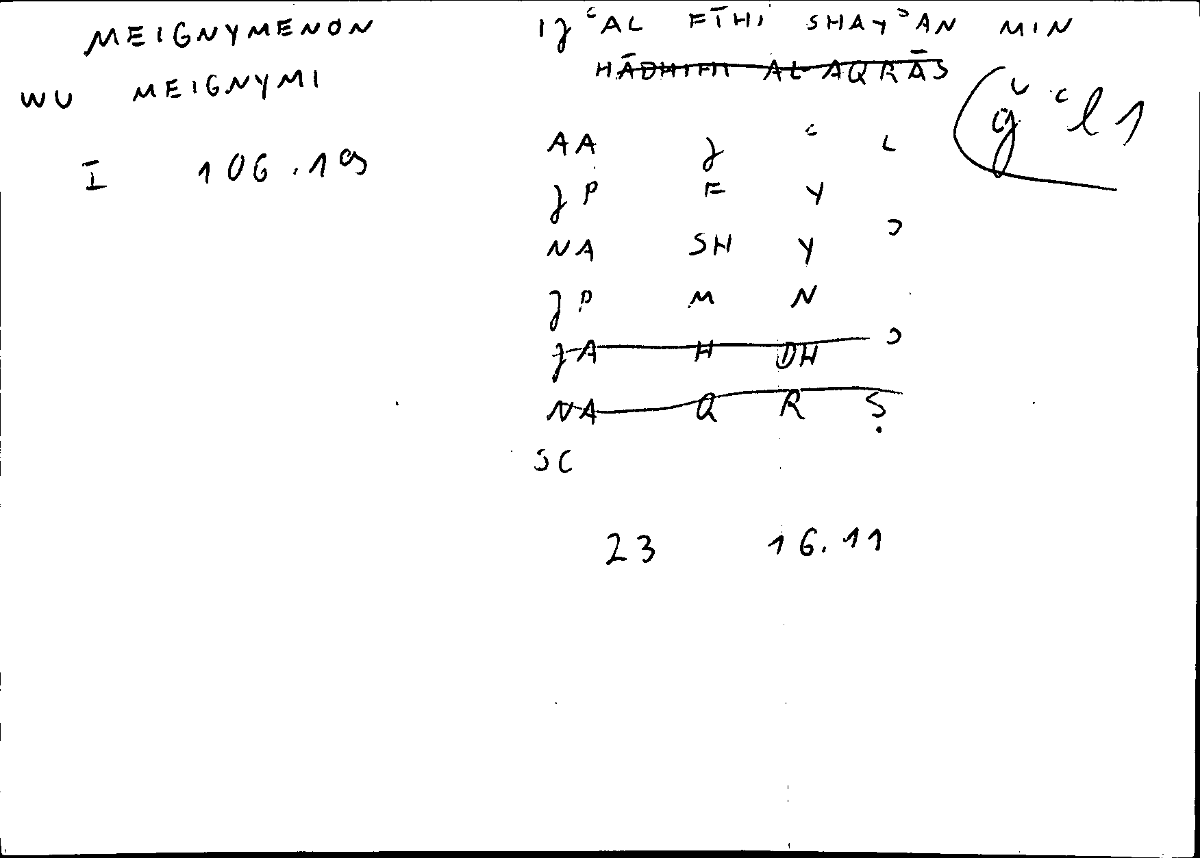 MEIGNYMENON
WU MEIGNYMI
I 106.19
IJ ʿAL FĪHI SHAYʾAN MIN
HĀDHIHI AL AQRĀS
ǧʿl 1
AA J ʿ L
JP F Y
NA SH Y ʾ
JP M N
JA H DH ʾ
NA Q R Ṣ
SC
23 16.11